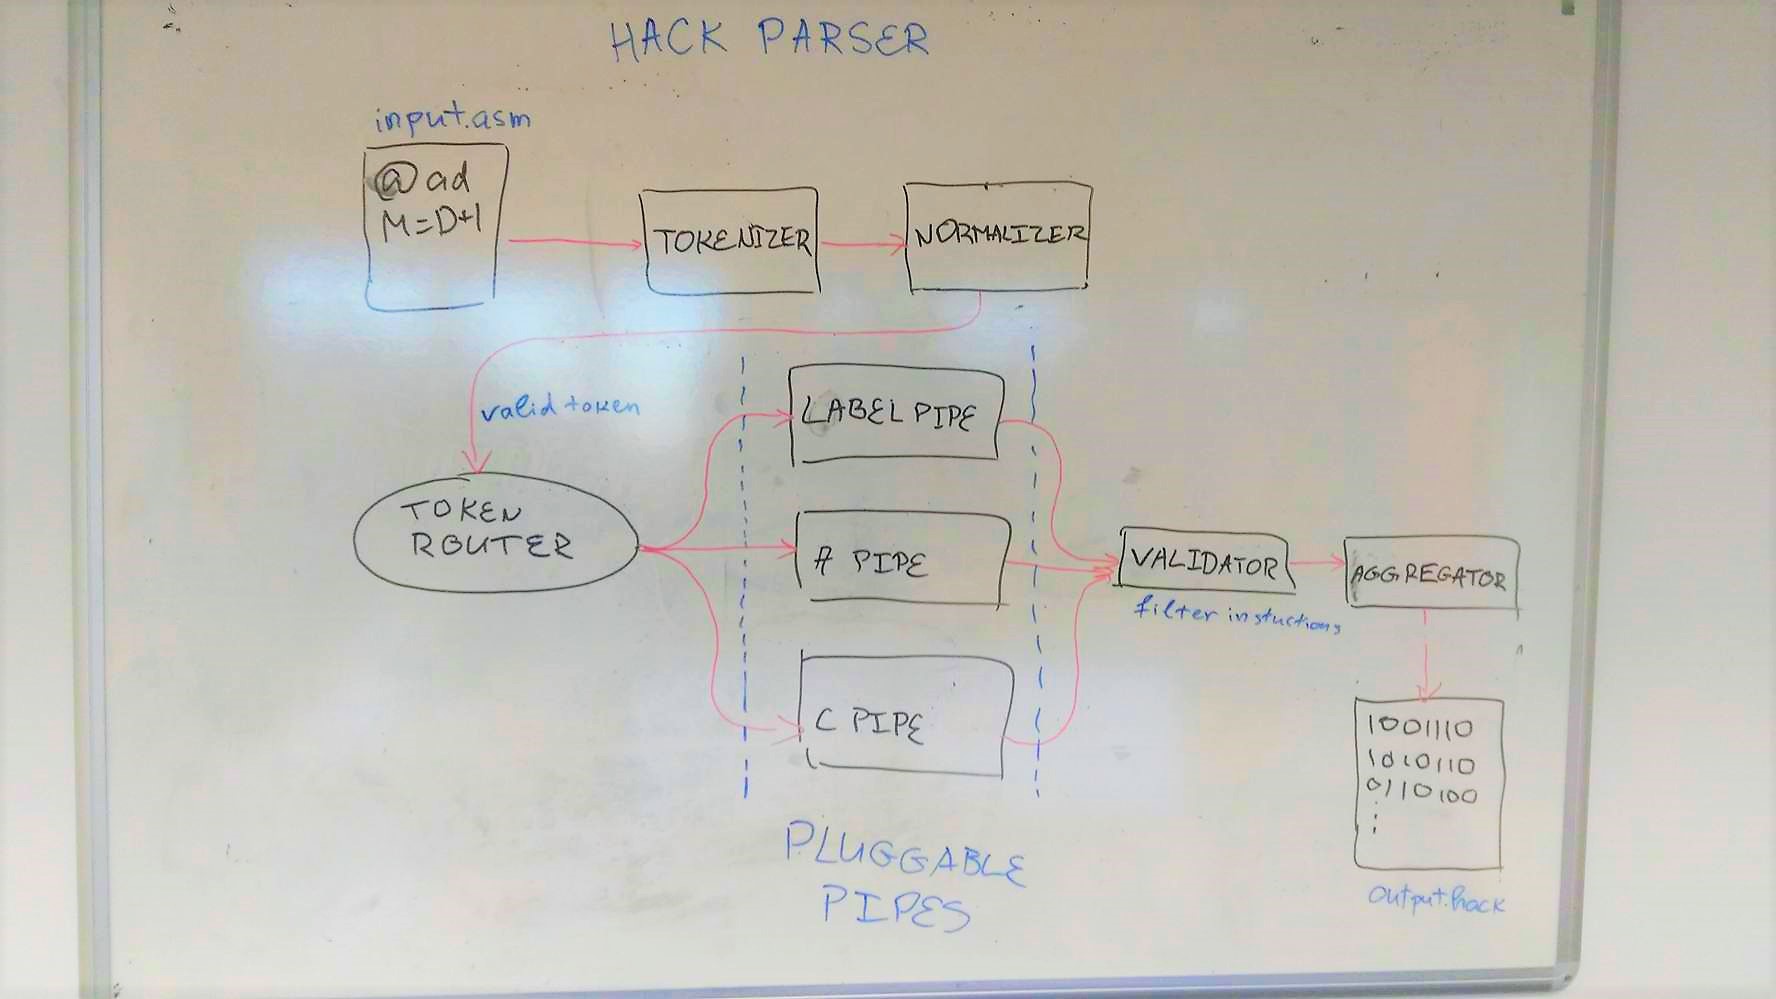 HACK PARSER
input.asm
@ad
M=D+1
TOKENIZER
NORMALIZER
valid token
TOKEN
ROUTER
LABEL PIPE
A PIPE
C PIPE
VALIDATOR
filter instuctions
AGGREGATOR
1001110
1010110
0110100
⋮
output.hack
PLUGGABLE
PIPES